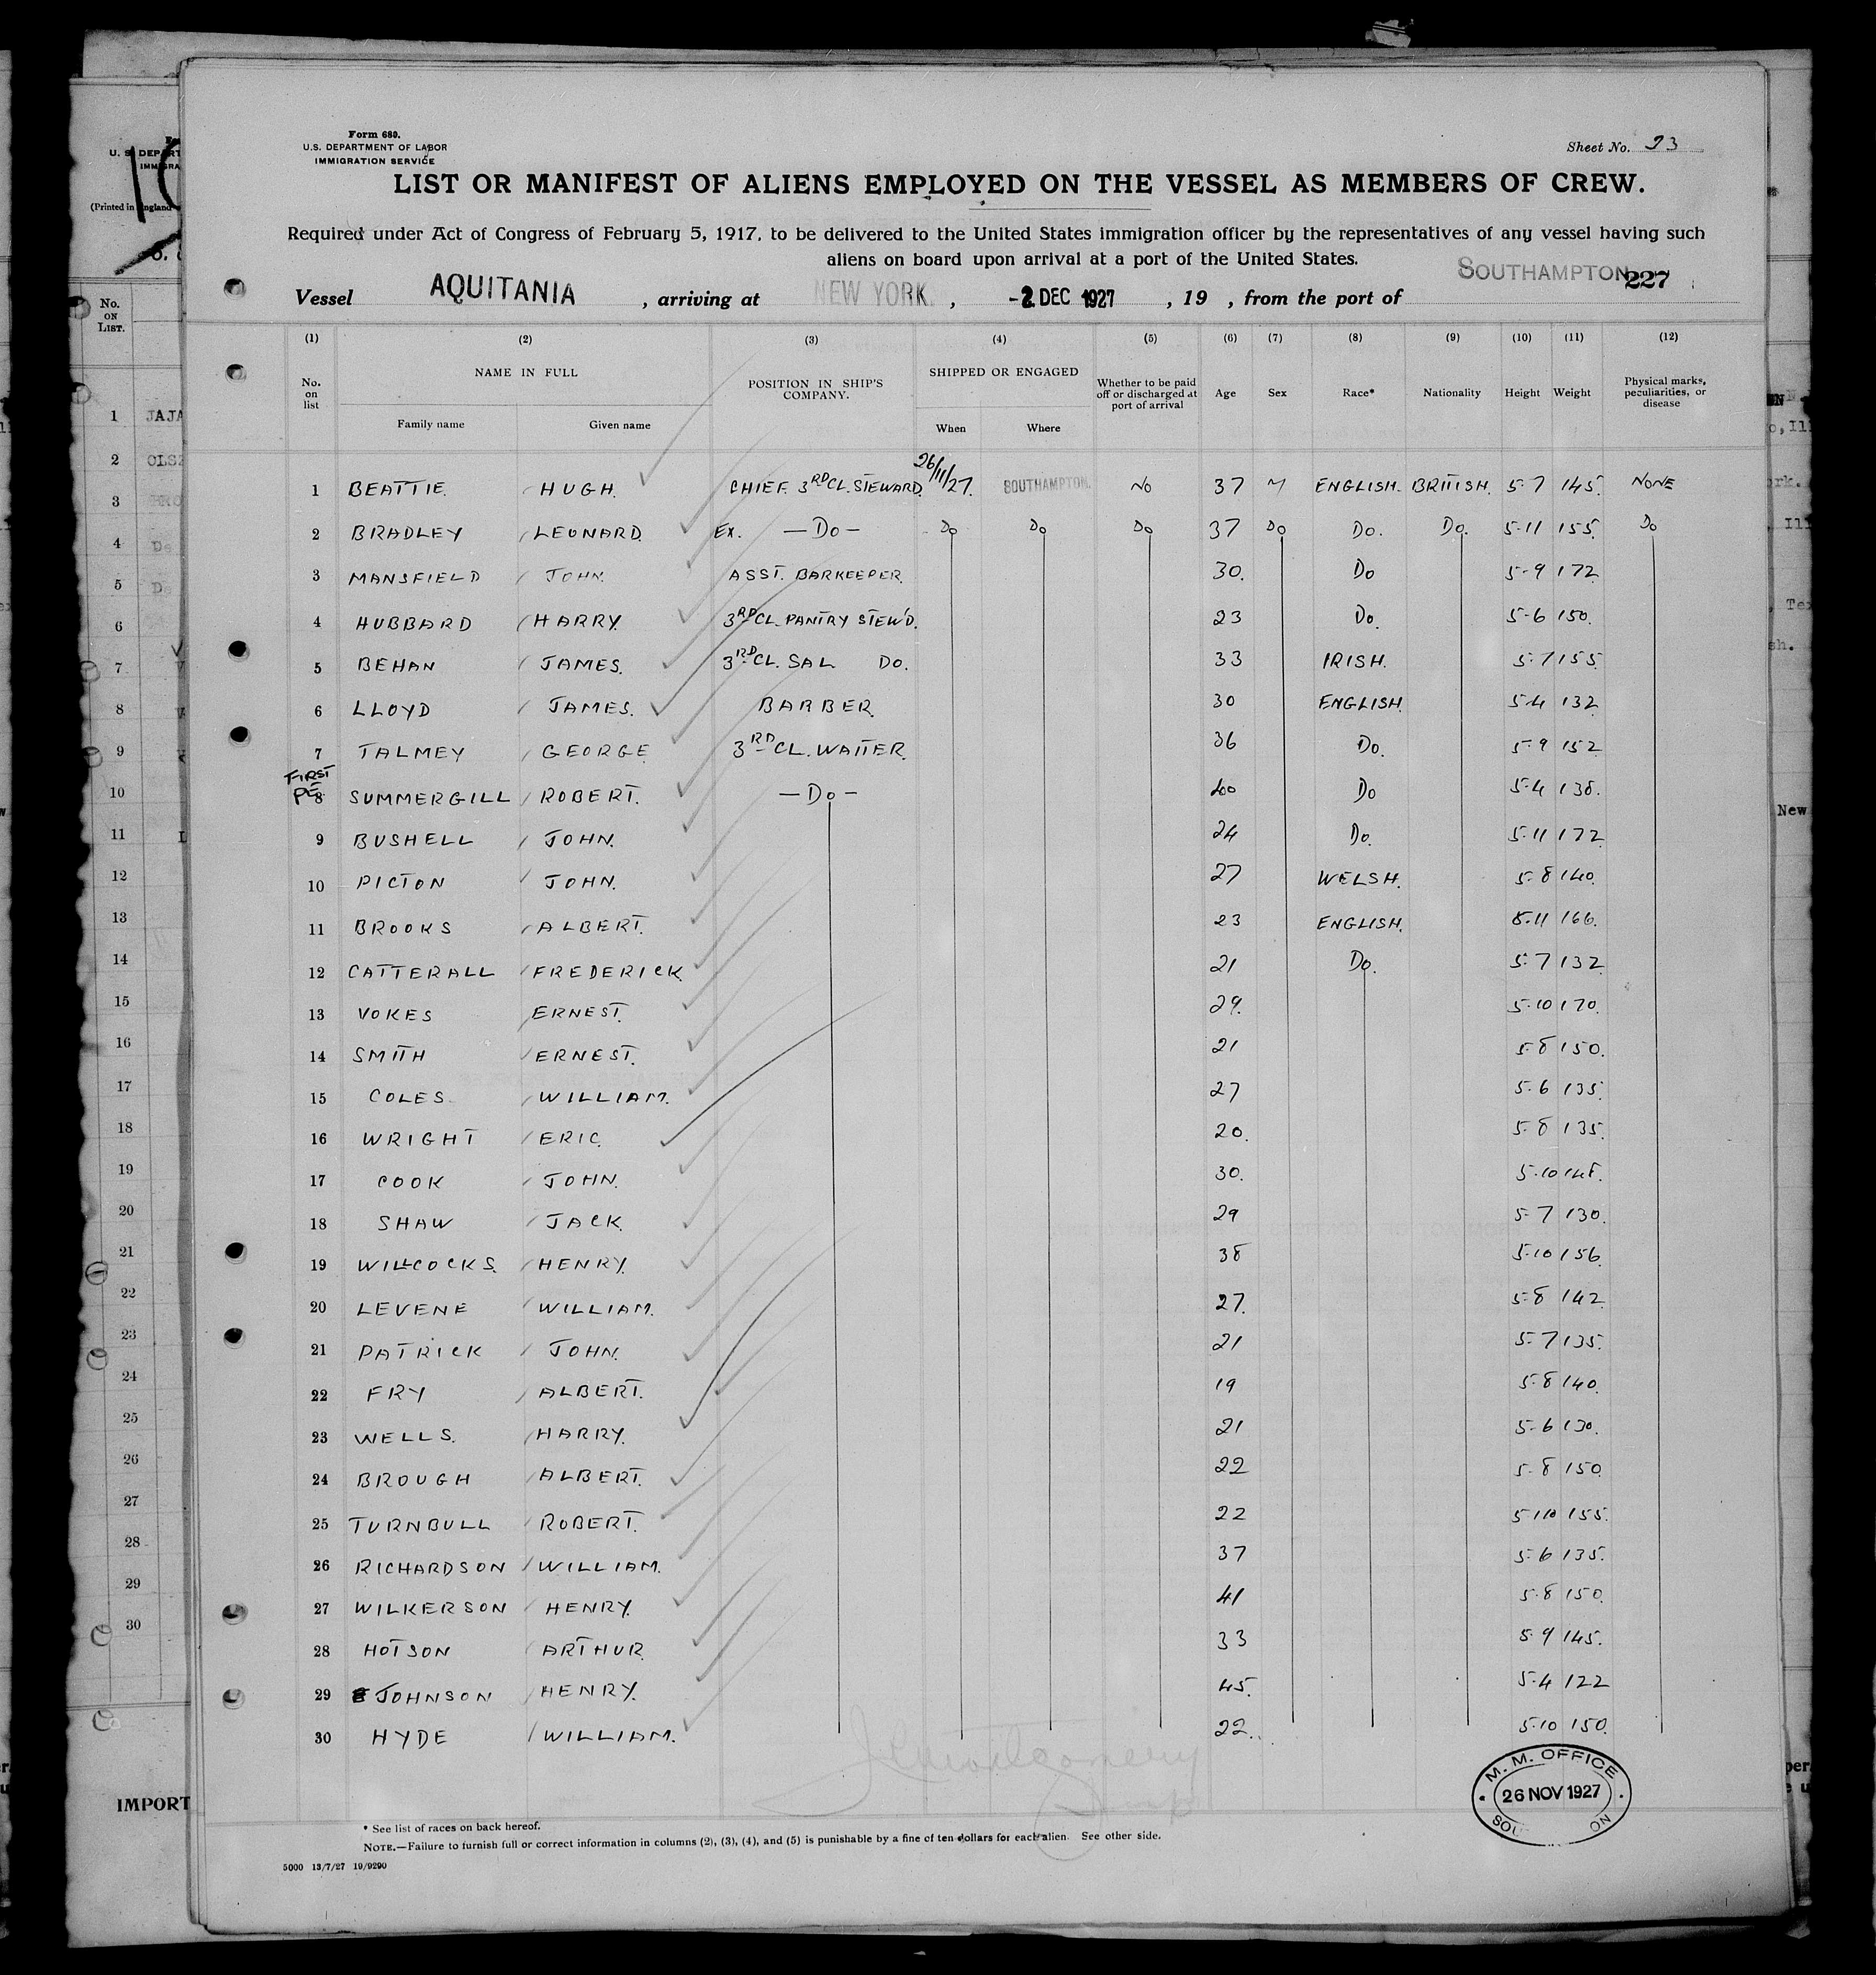 Form 680.
U.S. DEPARTMENT OF LABOR
IMMIGRATION SERVICE
Sheet No. 23
LIST OR MANIFEST OF ALIENS EMPLOYED ON THE VESSEL AS MEMBERS OF CREW.
Required under Act of Congress of February 5, 1917, to be delivered to the United States immigration officer by the representatives of any vessel having such
aliens on board upon arrival at a port of the United States.
Vessel AQUITANIA , arriving at NEW YORK. , -2 DEC 1927 , 19 , from the port of SOUTHAMPTON 227
(1) (2) (3) (4) (5) (6) (7) (8) (9) (10) (11) (12)
No. on list NAME IN FULL Family name Given name POSITION IN SHIP'S COMPANY. SHIPPED OR ENGAGED When Where Whether to be paid off or discharged at port of arrival Age Sex Race* Nationality Height Weight Physical marks, peculiarities, or disease
1 BEATTIE. HUGH. CHIEF. 3RD CL. STEWARD. 26/11/27. SOUTHAMPTON. NO 37 M ENGLISH. BRITISH. 5-7 145. NONE
2 BRADLEY LEONARD. EX. —DO— DO DO DO 37 DO DO. DO. 5-11 155. DO
3 MANSFIELD JOHN. ASST. BARKEEPER. 30. DO 5-9 172
4 HUBBARD HARRY. 3RD CL. PANTRY STEW'D. 23 DO. 5-6 150.
5 BEHAN JAMES. 3RD CL. SAL DO. 33 IRISH. 5-7 155
6 LLOYD JAMES. BARBER. 30 ENGLISH. 5-4 132
7 TALMEY GEORGE 3RD CL. WAITER. 36 DO. 5-9 152
FIRST
8 SUMMERGILL ROBERT. —DO— 40 DO 5-4 138.
9 BUSHELL JOHN. 24 DO. 5-11 172
10 PICTON JOHN. 27 WELSH. 5-8 140.
11 BROOKS ALBERT. 23 ENGLISH. 5-11 166.
12 CATTERALL FREDERICK. 21 DO. 5-7 132
13 VOKES ERNEST. 29. 5-10 170.
14 SMITH ERNEST. 21 5-8 150.
15 COLES WILLIAM. 27 5-6 135.
16 WRIGHT ERIC. 20. 5-8 135.
17 COOK JOHN. 30. 5-10 148.
18 SHAW JACK. 29 5-7 130.
19 WILLCOCKS. HENRY. 38 5-10 156.
20 LEVENE WILLIAM. 27. 5-8 142
21 PATRICK JOHN. 21 5-7 135.
22 FRY ALBERT. 19 5-8 140.
23 WELLS. HARRY. 21 5-6 130.
24 BROUGH ALBERT. 22 5-8 150.
25 TURNBULL ROBERT. 22 5-10 155.
26 RICHARDSON WILLIAM. 37 5-6 135.
27 WILKERSON HENRY. 41 5-8 150.
28 HOTSON ARTHUR. 33 5-9 145.
29 JOHNSON HENRY. 45. 5-4 122
30 HYDE WILLIAM. 22. 5-10 150.
M. M. OFFICE
26 NOV 1927
* See list of races on back hereof.
NOTE.—Failure to furnish full or correct information in columns (2), (3), (4), and (5) is punishable by a fine of ten dollars for each alien. See other side.
5000 13/7/27 19/9290
No. ON LIST.
IMPORT